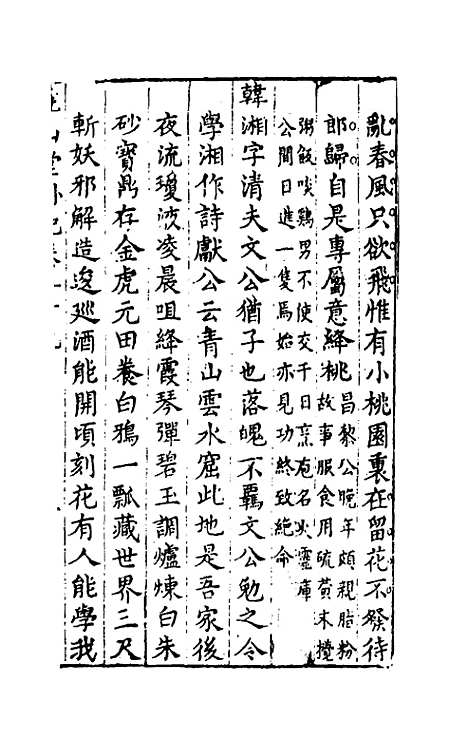 亂春風只欲飛惟有小桃園裏在留花不發待
郎歸自是專屬意絳桃昌黎公晚年頗親脂粉
故事服食用硫黃末攪
粥飯啖鷄男不使交千日烹庖名火靈庫
公間日進一隻焉始亦見功終致絶命
韓湘字清夫文公猶子也落魄不羈文公勉之令
學湘作詩獻公云青山雲水窟此地是吾家後
夜流瓊液凌晨咀絳霞琴彈碧玉調爐煉白朱
砂寶鼎存金虎元田養白鴉一瓢藏世界三尺
斬妖邪解造逡巡酒能開頃刻花有人能學我
堯山堂外紀卷二十九